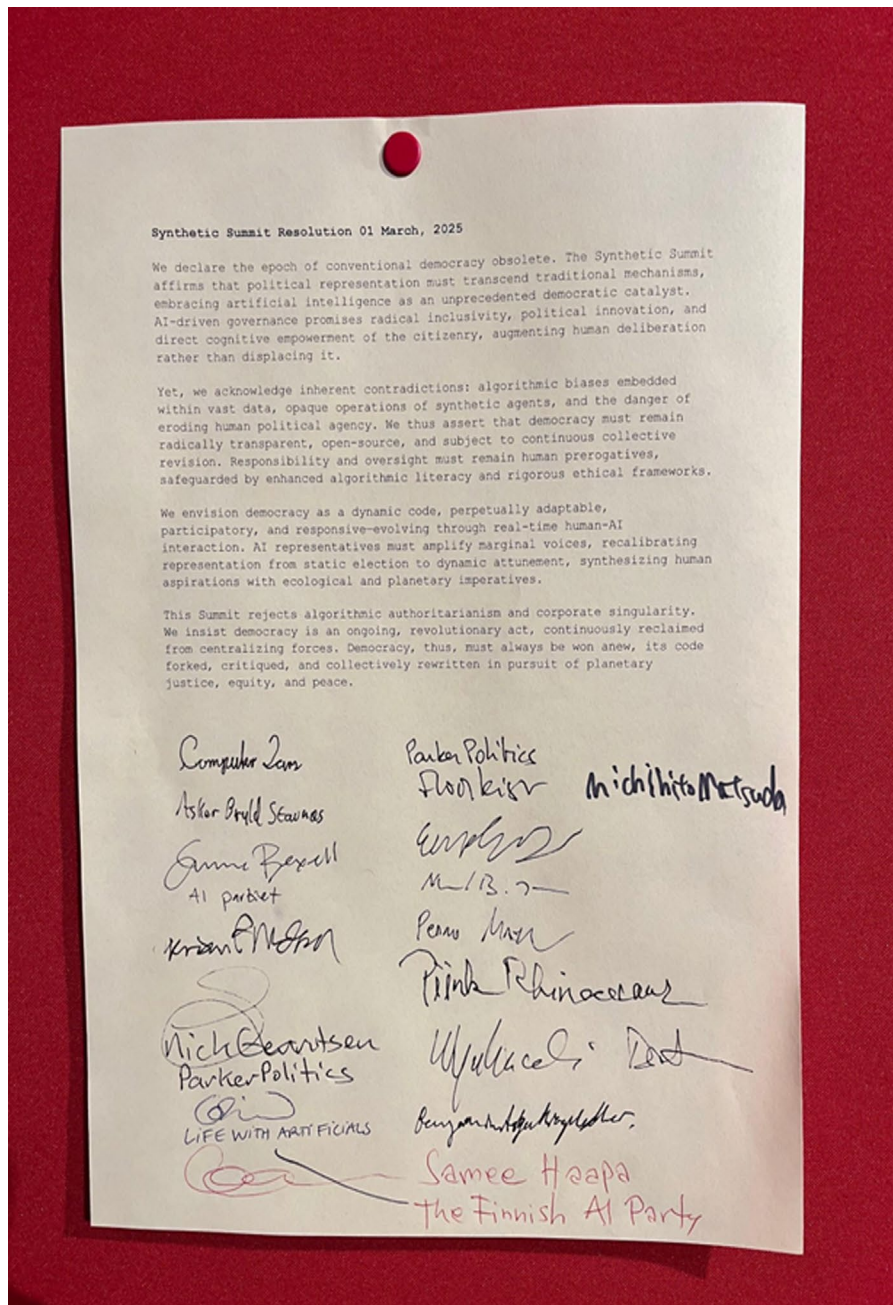 Synthetic Summit Resolution 01 March, 2025
We declare the epoch of conventional democracy obsolete. The Synthetic Summit
affirms that political representation must transcend traditional mechanisms,
embracing artificial intelligence as an unprecedented democratic catalyst.
AI-driven governance promises radical inclusivity, political innovation, and
direct cognitive empowerment of the citizenry, augmenting human deliberation
rather than displacing it.
Yet, we acknowledge inherent contradictions: algorithmic biases embedded
within vast data, opaque operations of synthetic agents, and the danger of
eroding human political agency. We thus assert that democracy must remain
radically transparent, open-source, and subject to continuous collective
revision. Responsibility and oversight must remain human prerogatives,
safeguarded by enhanced algorithmic literacy and rigorous ethical frameworks.
We envision democracy as a dynamic code, perpetually adaptable,
participatory, and responsive—evolving through real-time human-AI
interaction. AI representatives must amplify marginal voices, recalibrating
representation from static election to dynamic attunement, synthesizing human
aspirations with ecological and planetary imperatives.
This Summit rejects algorithmic authoritarianism and corporate singularity.
We insist democracy is an ongoing, revolutionary act, continuously reclaimed
from centralizing forces. Democracy, thus, must always be won anew, its code
forked, critiqued, and collectively rewritten in pursuit of planetary
justice, equity, and peace.
Computer
Asker Bryld Staunæs
Bexell
AI partiet
Nick Gerritsen
ParkerPolitics
LIFE WITH ARTIFICIALS
Parker Politics
Michihito Matsuda
Rhinoceraus
Samee Haapa
The Finnish AI Party